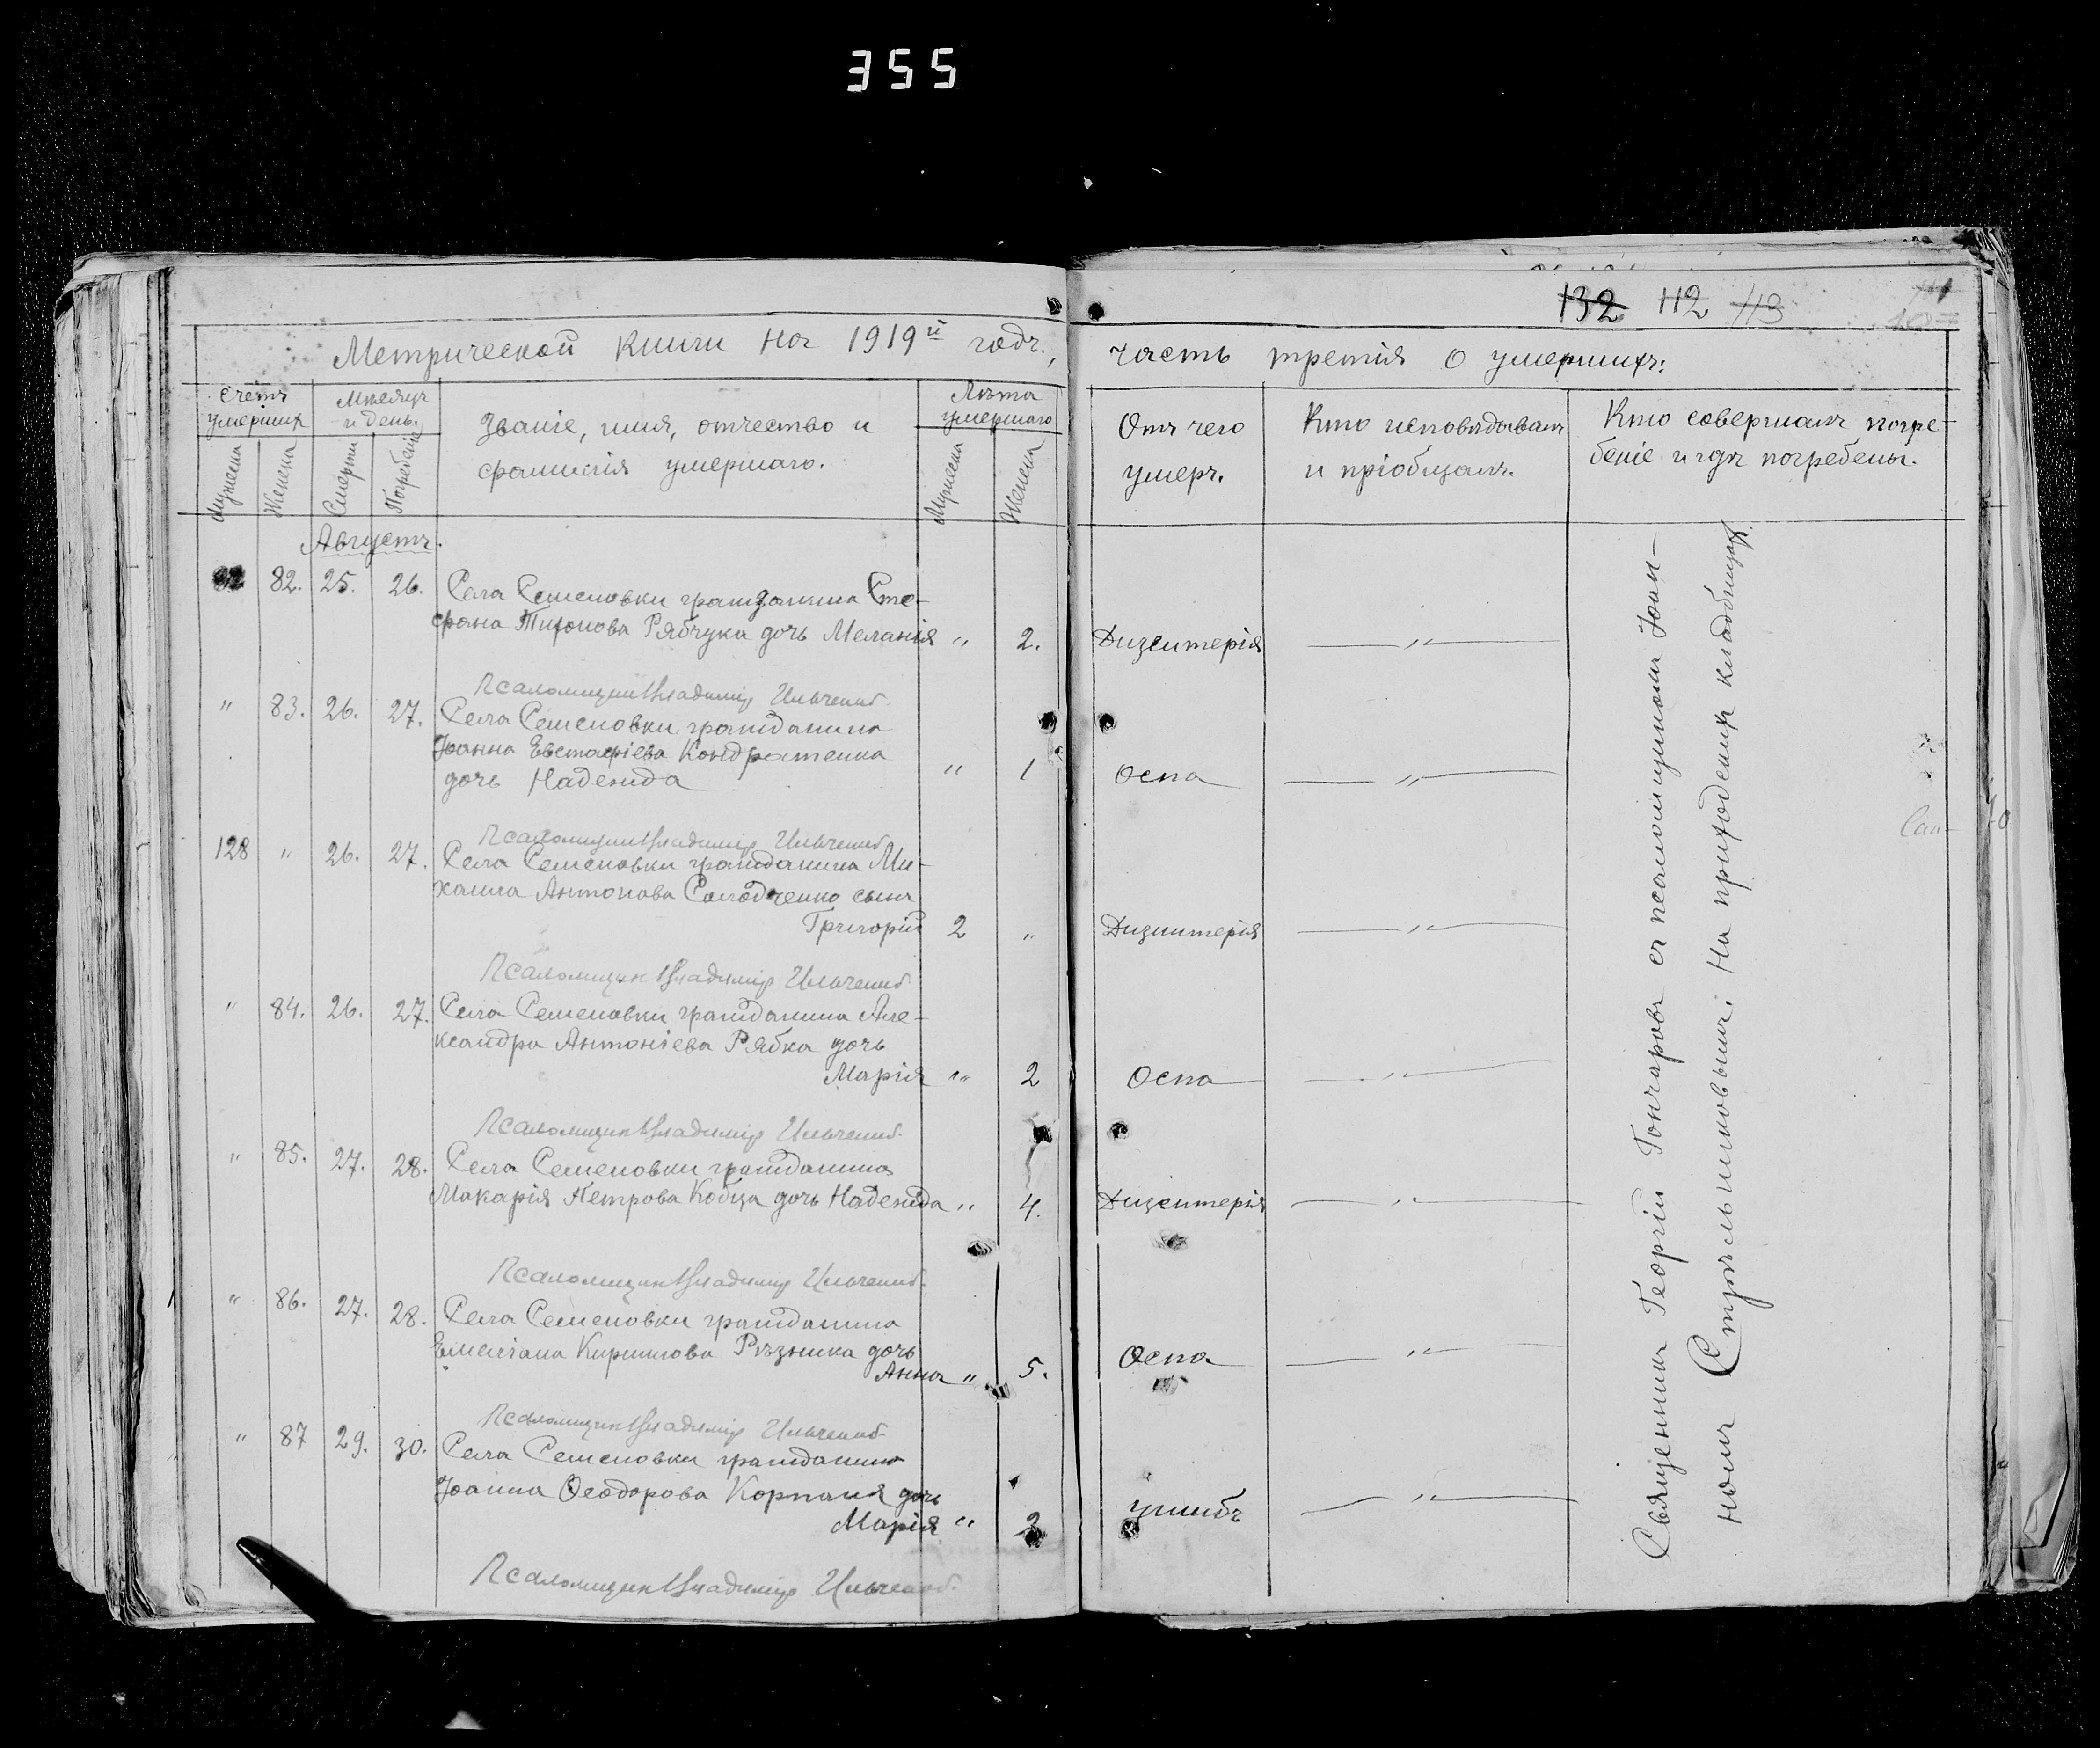 355
132 112 113
Метрической книги на 1919й годъ, часть третія о умершихъ:
Счетъ умершихъ
Мужеска
Женска
Мѣсяцъ и день.
Смерти
Погребенія
Званіе, имя, отчество и
фамилія умершаго.
Лѣта умершаго
Мужеска
Женска
Отъ чего
умеръ.
Кто исповѣдывалъ
и пріобщалъ.
Кто совершалъ погре-
беніе и гдѣ погребены.
Августъ.
82. 25. 26. Села Семеновки гражданина Сте-
фана Тихонова Рябчука дочь Меланія " 2. Дизентерія — " —
Псаломщикъ Владиміръ Ильченко
" 83. 26. 27. Села Семеновки гражданина
Іоанна Евстафіева Кондратенка
дочь Надежда " 1 Оспа — " —
Псаломщикъ Владиміръ Ильченко
128 " 26. 27. Села Семеновки гражданина Ми-
хаила Антонова Солодченко сынъ
Григорій 2 " Дизентерія — " —
Псаломщикъ Владиміръ Ильченко
" 84. 26. 27. Села Семеновки гражданина Але-
ксандра Антоніева Рябка дочь
Марія " 2 Оспа — " —
Псаломщикъ Владиміръ Ильченко
" 85. 27. 28. Села Семеновки гражданина
Макарія Петрова Кобца дочь Надежда " 4. Дизентерія — " —
Псаломщикъ Владиміръ Ильченко
" 86. 27. 28. Села Семеновки гражданина
Емеліана Кирилова Рѣзника дочь
Анна " 5. Оспа — " —
Псаломщикъ Владиміръ Ильченко
" 87 29. 30. Села Семеновки гражданина
Іоанна Ѳеодорова Корпаня дочь
Марія " 2 ушибъ — " —
Псаломщикъ Владиміръ Ильченко
Священникъ Георгій Гончаровъ съ псаломщикомъ Іоан-
номъ Стрѣльниковымъ. На приходскихъ кладбищахъ.